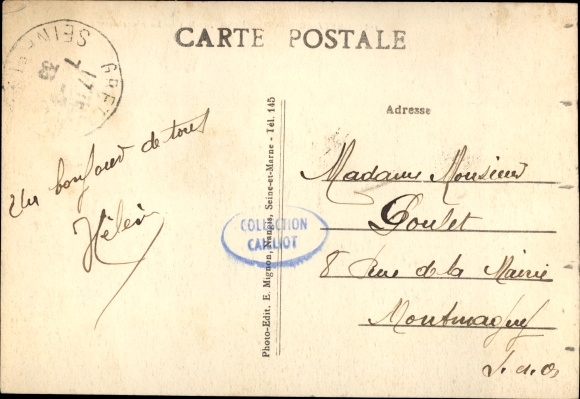 CARTE POSTALE
SEINE
17
7
Adresse
Un bonjour de tous
Hélène
Photo-Edit. E. Mignon, Nangis, Seine-et-Marne - Tél. 145
COLLECTION
CAILLIOT
Madame Monsieur
Goulet
8 Rue de la Mairie
Montmagny
S. et O.